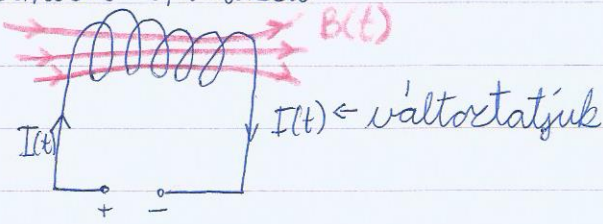 B(t)
I(t) I(t) ← változtatjuk
+ −